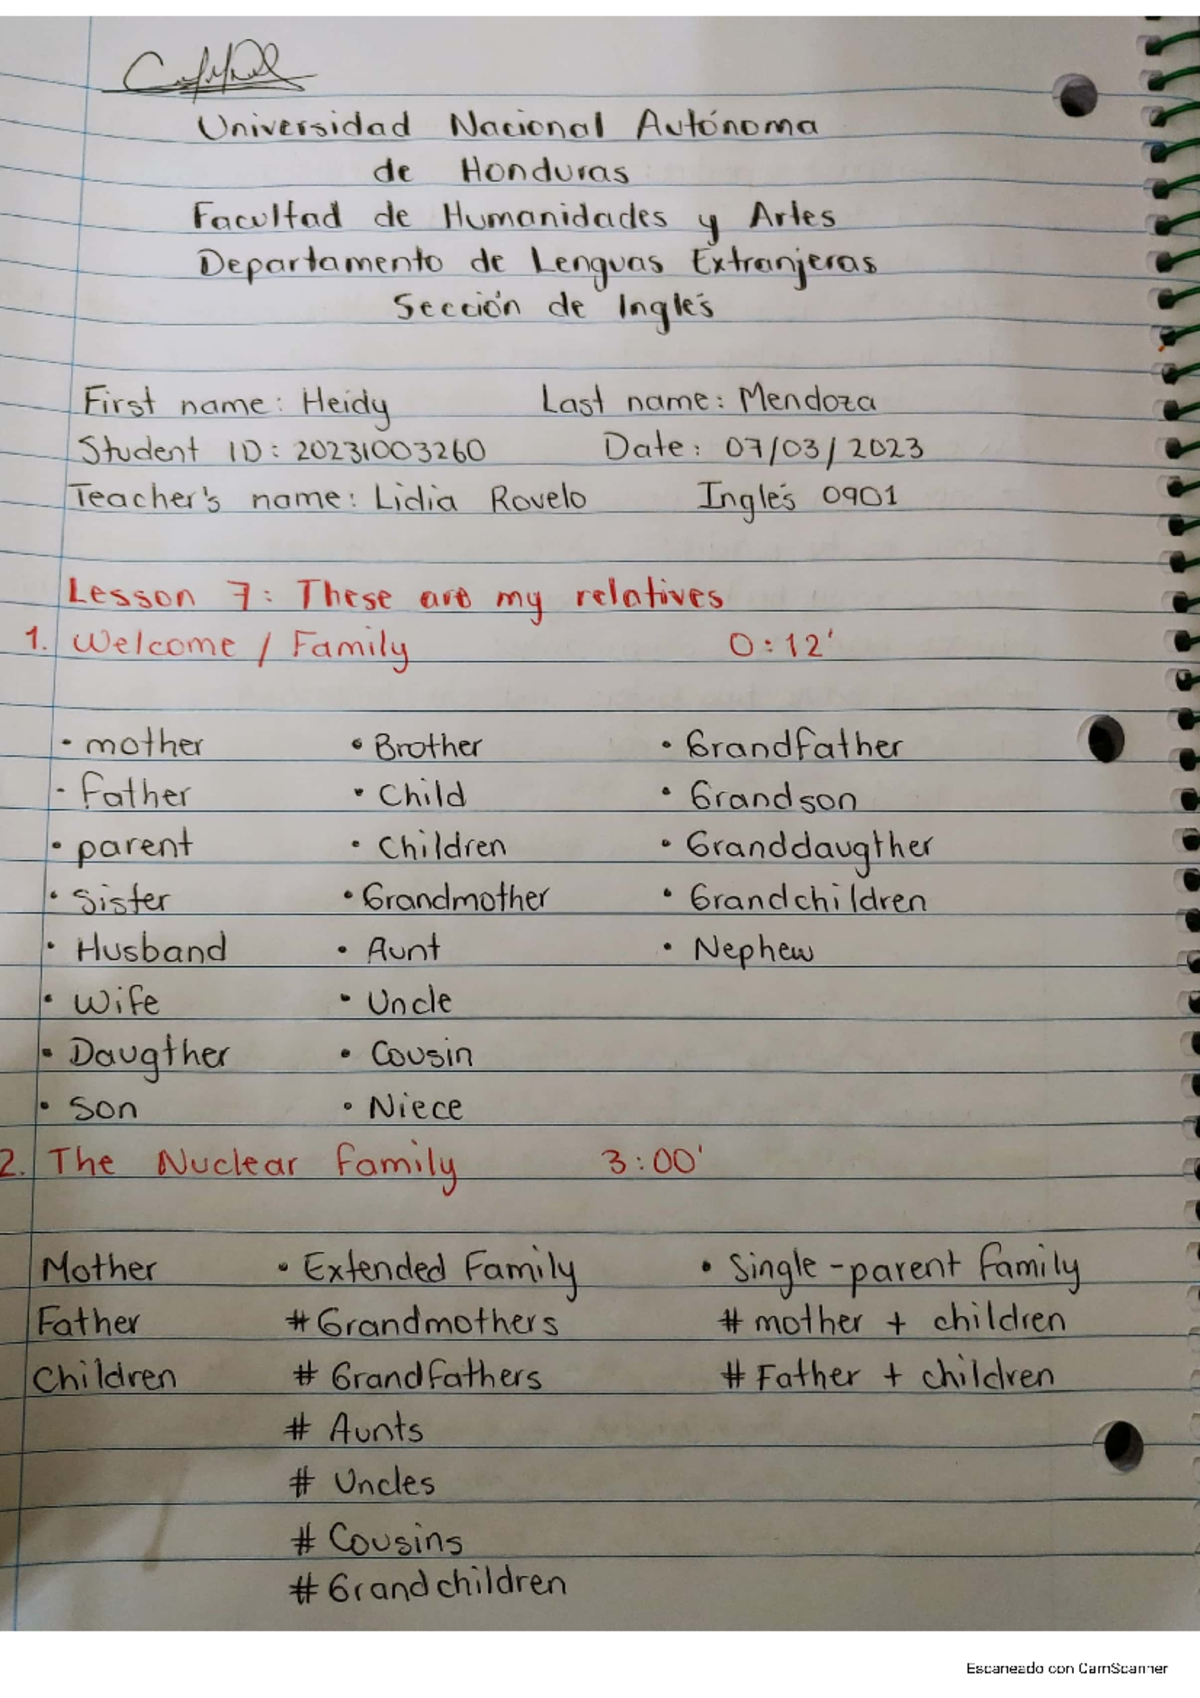 Universidad Nacional Autónoma
de Honduras
Facultad de Humanidades y Artes
Departamento de Lenguas Extranjeras
Sección de Inglés
First name: Heidy Last name: Mendoza
Student ID: 20231003260 Date: 07/03/2023
Teacher's name: Lidia Rovelo Inglés 0901
Lesson 7: These are my relatives
1. Welcome / Family 0:12'
• mother • Brother • Grandfather
• Father • Child • Grandson
• parent • Children • Granddaugther
• Sister • Grandmother • Grandchildren
• Husband • Aunt • Nephew
• Wife • Uncle
• Daugther • Cousin
• Son • Niece
2. The Nuclear Family 3:00'
Mother • Extended Family • Single-parent family
Father # Grandmothers # mother + children
Children # Grandfathers # Father + children
# Aunts
# Uncles
# Cousins
# Grandchildren
Escaneado con CamScanner